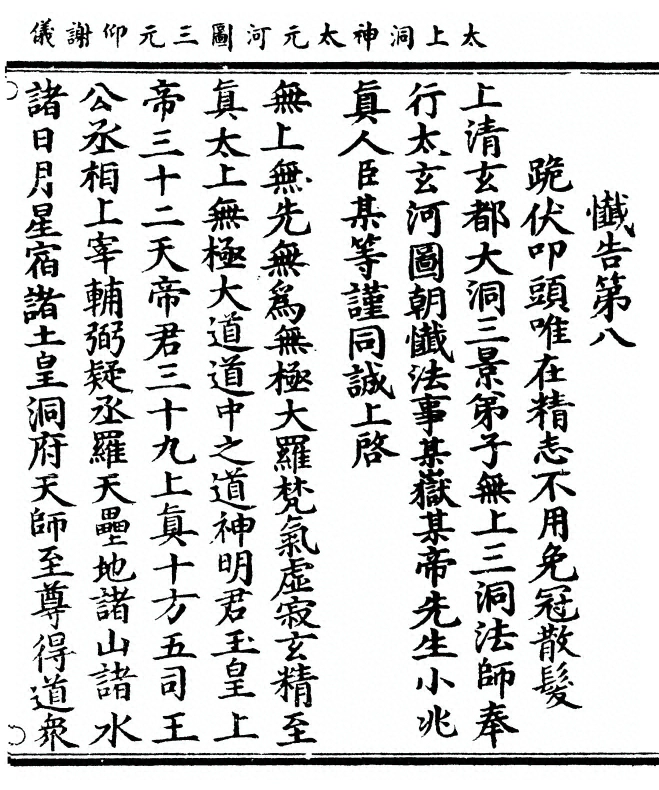 太上洞神太元河圖三元仰謝儀
懺告第八
跪伏叩頭唯在精志不用免冠散髮
上清玄都大洞三景弟子無上三洞法師奉
行太玄河圖朝懺法事某嶽某帝先生小兆
眞人臣某等謹同誠上啓
無上無先無爲無極大羅梵氣虛寂玄精至
眞太上無極大道道中之道神明君玉皇上
帝三十二天帝君三十九上眞十方五司王
公丞相上宰輔弼疑丞羅天壘地諸山諸水
諸日月星宿諸土皇洞府天師至尊得道衆